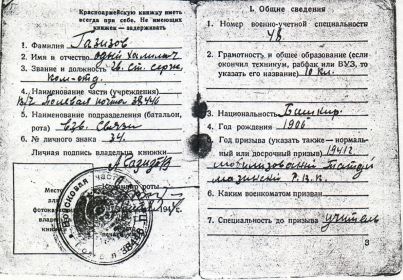 Красноармейскую книжку иметь
всегда при себе. Не имеющих
книжек — задерживать
1. Фамилия Газизов
2. Имя и отчество
3. Звание и должность Гв. ст. серж.
ком. отд.
4. Наименование части (учреждения)
Полевая почта 38446
5. Наименование подразделения (батальон,
рота) Взв. Связи
6. № личного знака 34.
Личная подпись владельца книжки
Место
для
фотокарточки
владельца
книжки
Командир роты
I. Общие сведения
1. Номер военно-учетной специальности
2. Грамотность и общее образование (если
окончил техникум, рабфак или ВУЗ, то
указать его название) 10 кл.
3. Национальность Башкир.
4. Год рождения 1906
5. Год призыва (указать также — нормаль-
ный или досрочный призыв) 1941 г.
мобилизованный
Р.В.К.
6. Каким военкоматом призван
7. Специальность до призыва учитель
3